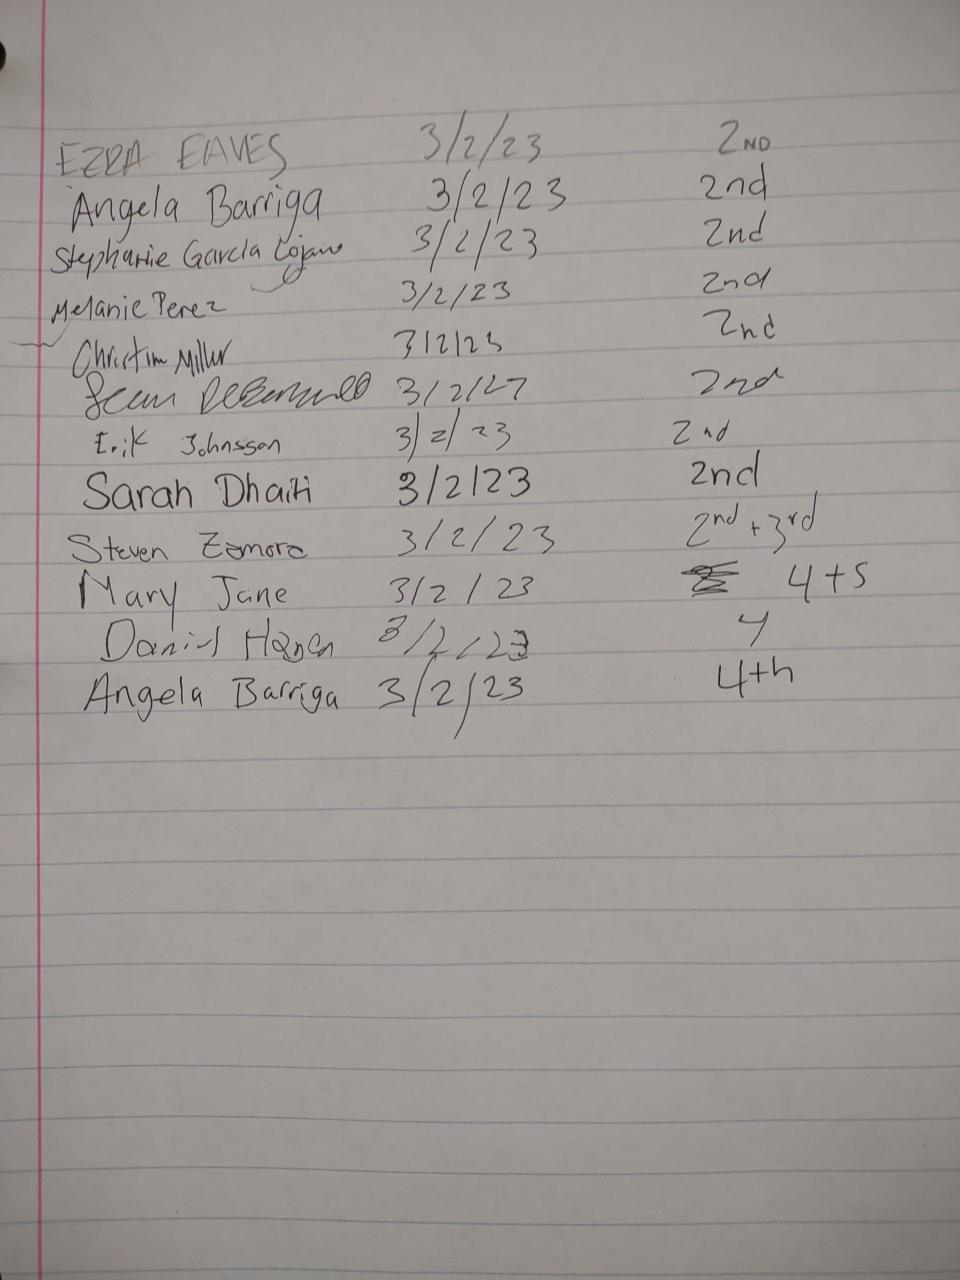 EZRA EAVES 3/2/23 2ND
Angela Barriga 3/2/23 2nd
Stephanie Garcia Lojano 3/2/23 2nd
Melanie Perez 3/2/23 2nd
Miller 3/2/23 2nd
Sean 3/2/27 2nd
Erik Johnsson 3/2/23 2nd
Sarah Dhaiti 3/2/23 2nd
Steven Zamora 3/2/23 2nd + 3rd
Mary Jane 3/2/23 4+5
Daniel 3/2/23 4
Angela Barriga 3/2/23 4th